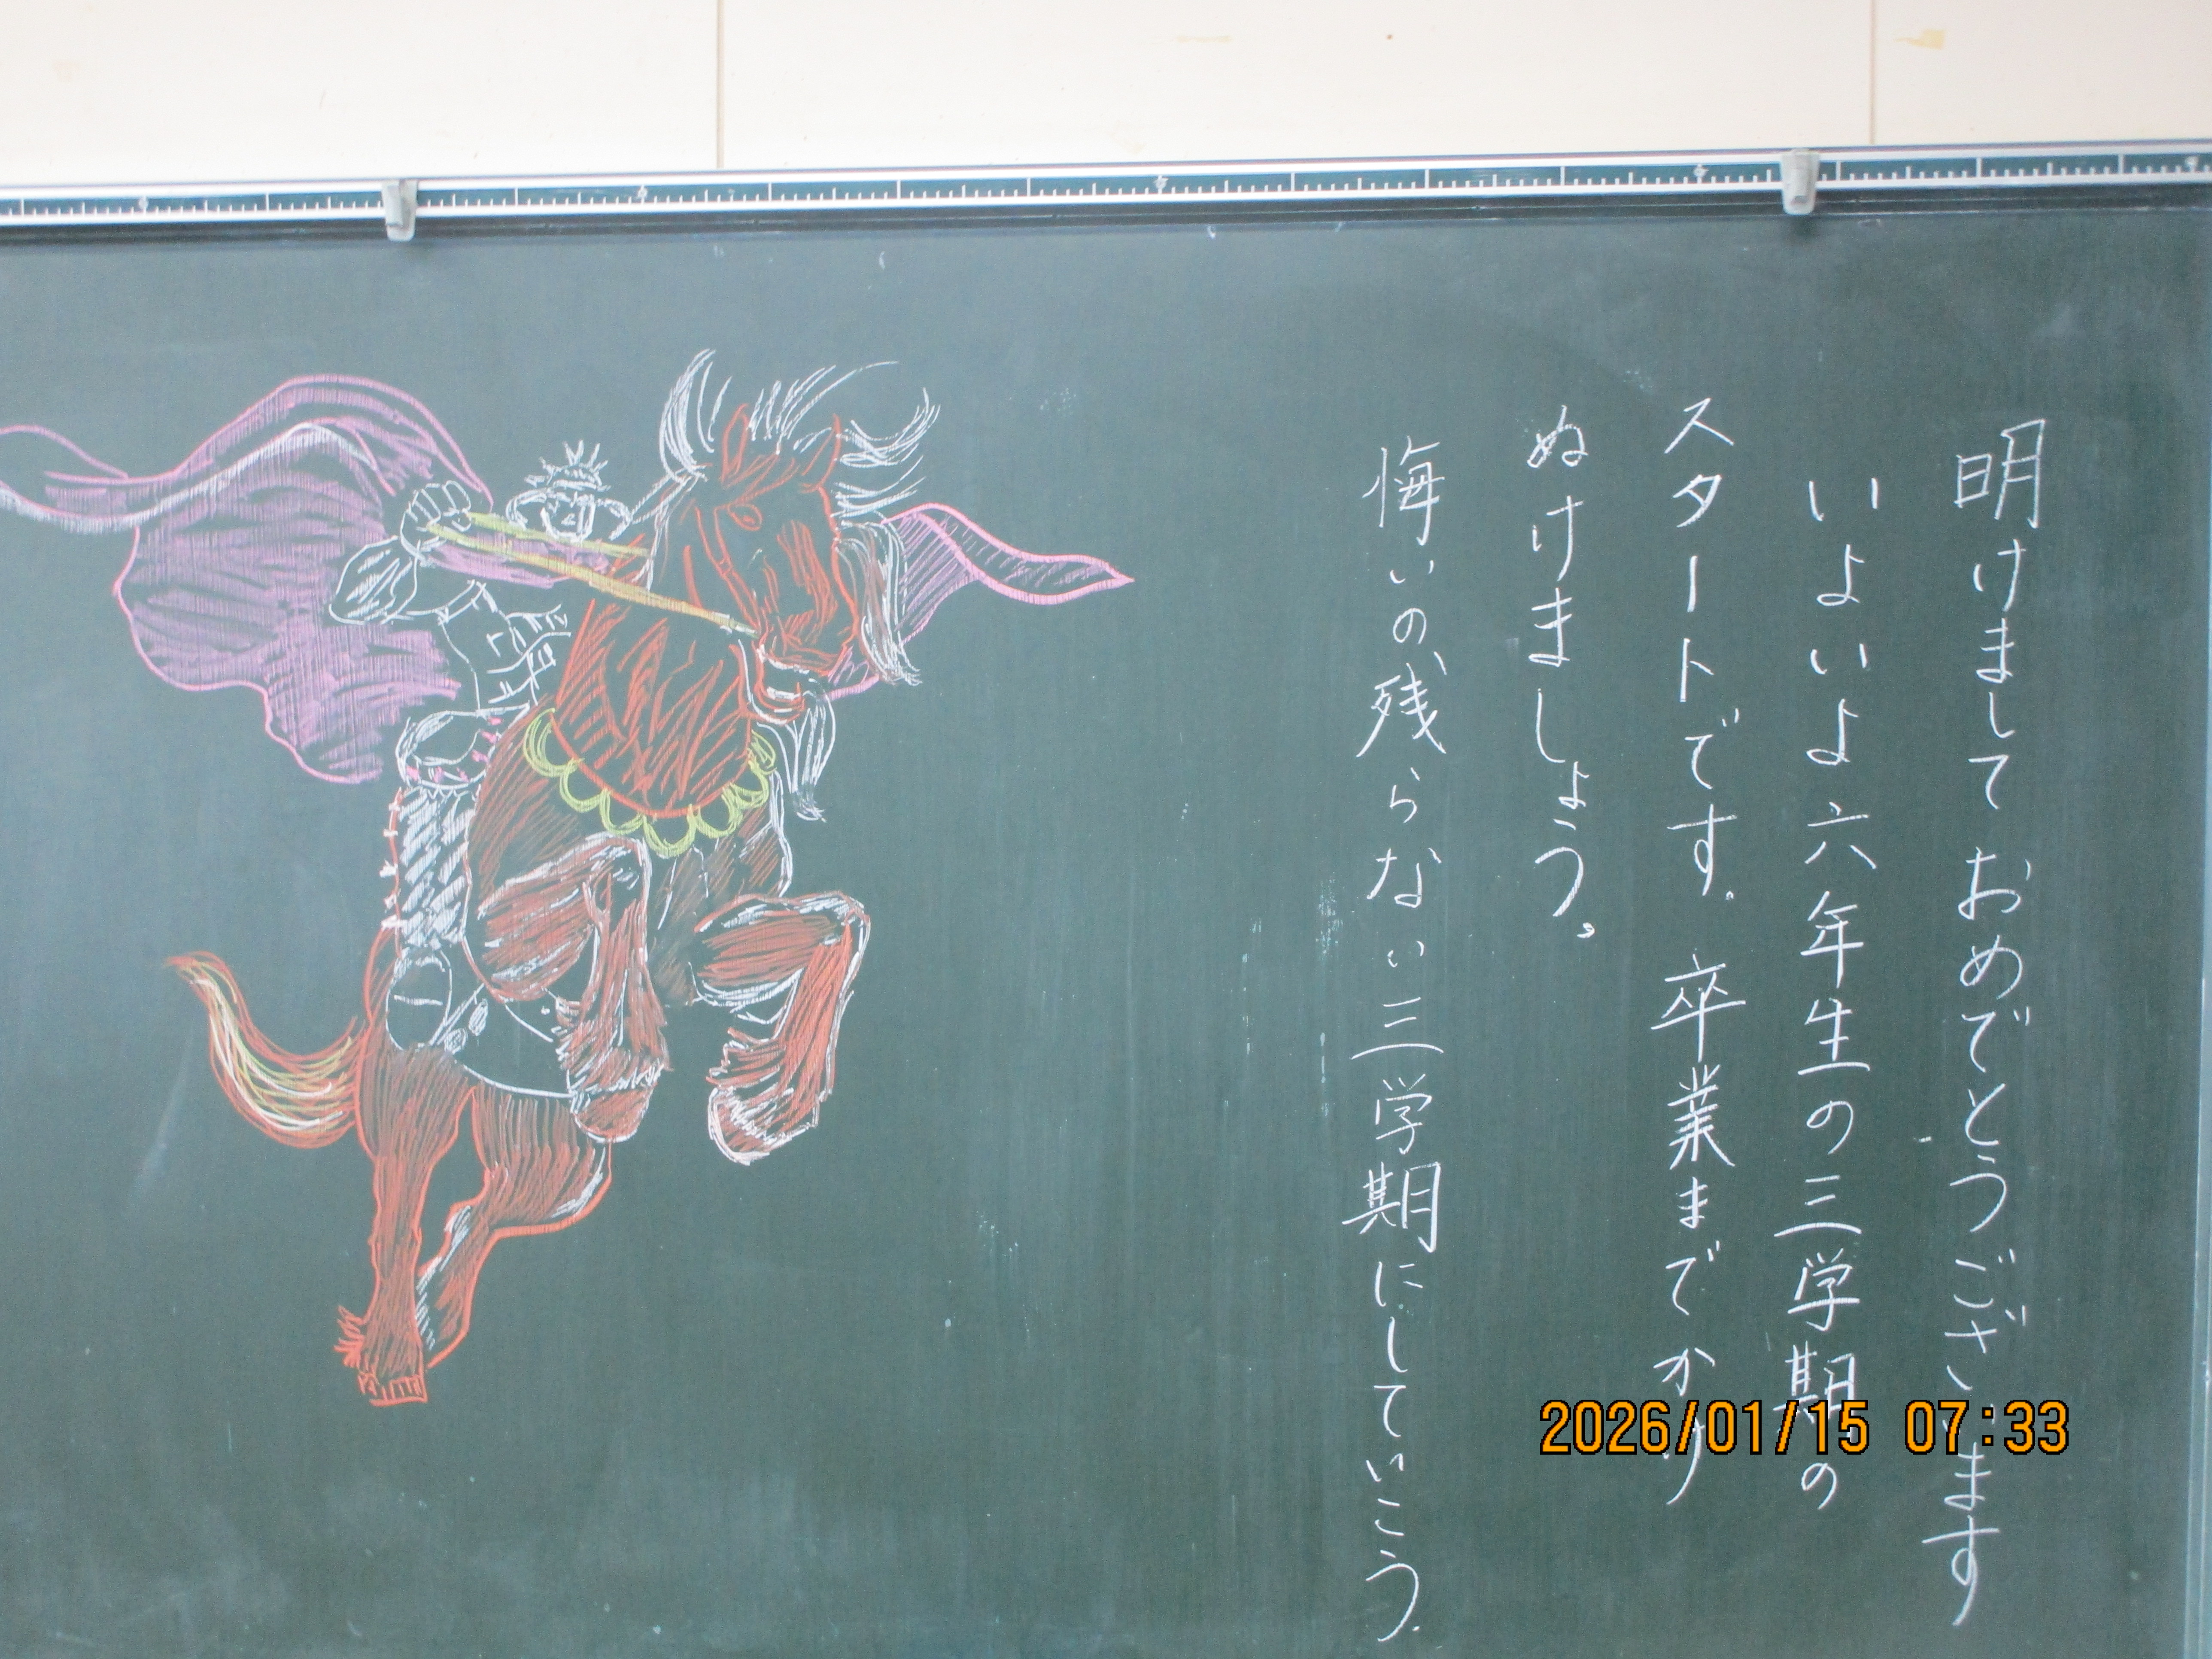 明けまして おめでとうございます
いよいよ六年生の三学期の
スタートです。卒業までかけ
ぬけましょう。
悔いの残らない三学期にしていこう。
2026/01/15 07:33